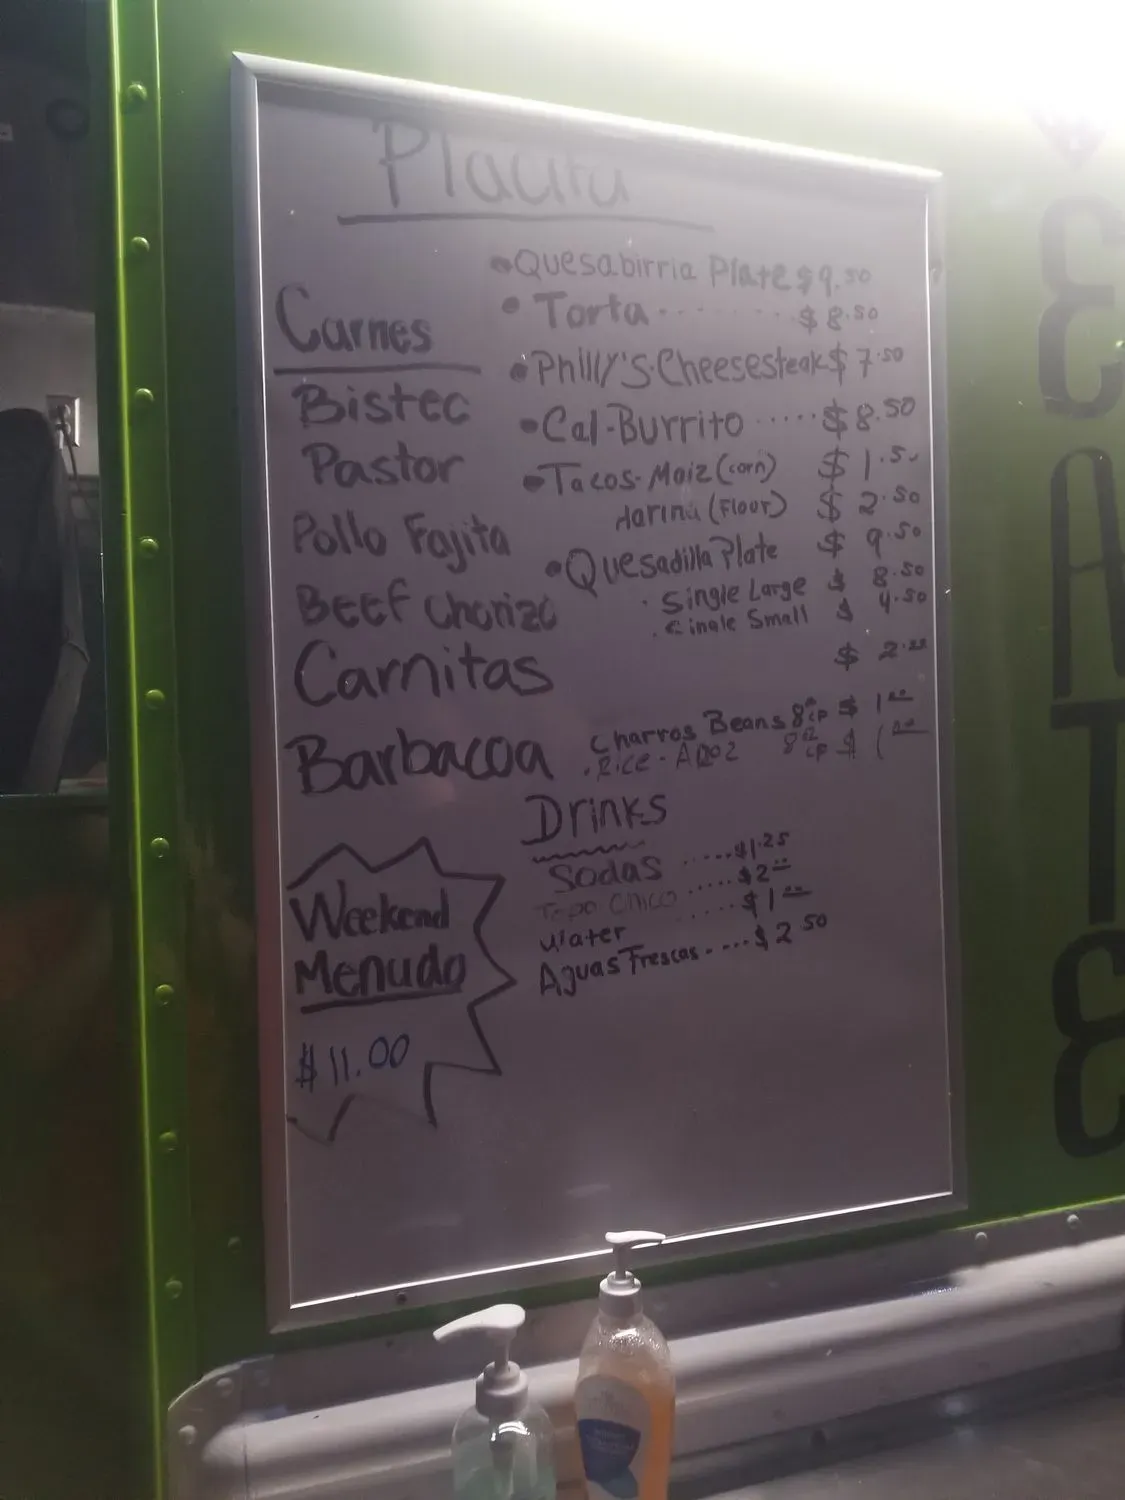 Carnes
Bistec
Pastor
Pollo Fajita
Beef Chorizo
Carnitas
Barbacoa
Weekend
Menudo
$11.00
• Quesabirria Plate $9.50
• Torta ........ $8.50
• Philly's Cheesesteak $7.50
• Cal-Burrito ..... $8.50
• Tacos. Maiz (corn) $1.50
Harina (Floor) $2.50
• Quesadilla Plate $9.50
. Single Large $8.50
. Single Small $4.50
$2.00
Charros Beans 8oz cp $1.00
. Rice - Arroz 8oz cp $1.00
Drinks
Sodas .....$1.25
Topo Chico .....$2.00
Water .....$1.00
Aguas Frescas.....$2.50